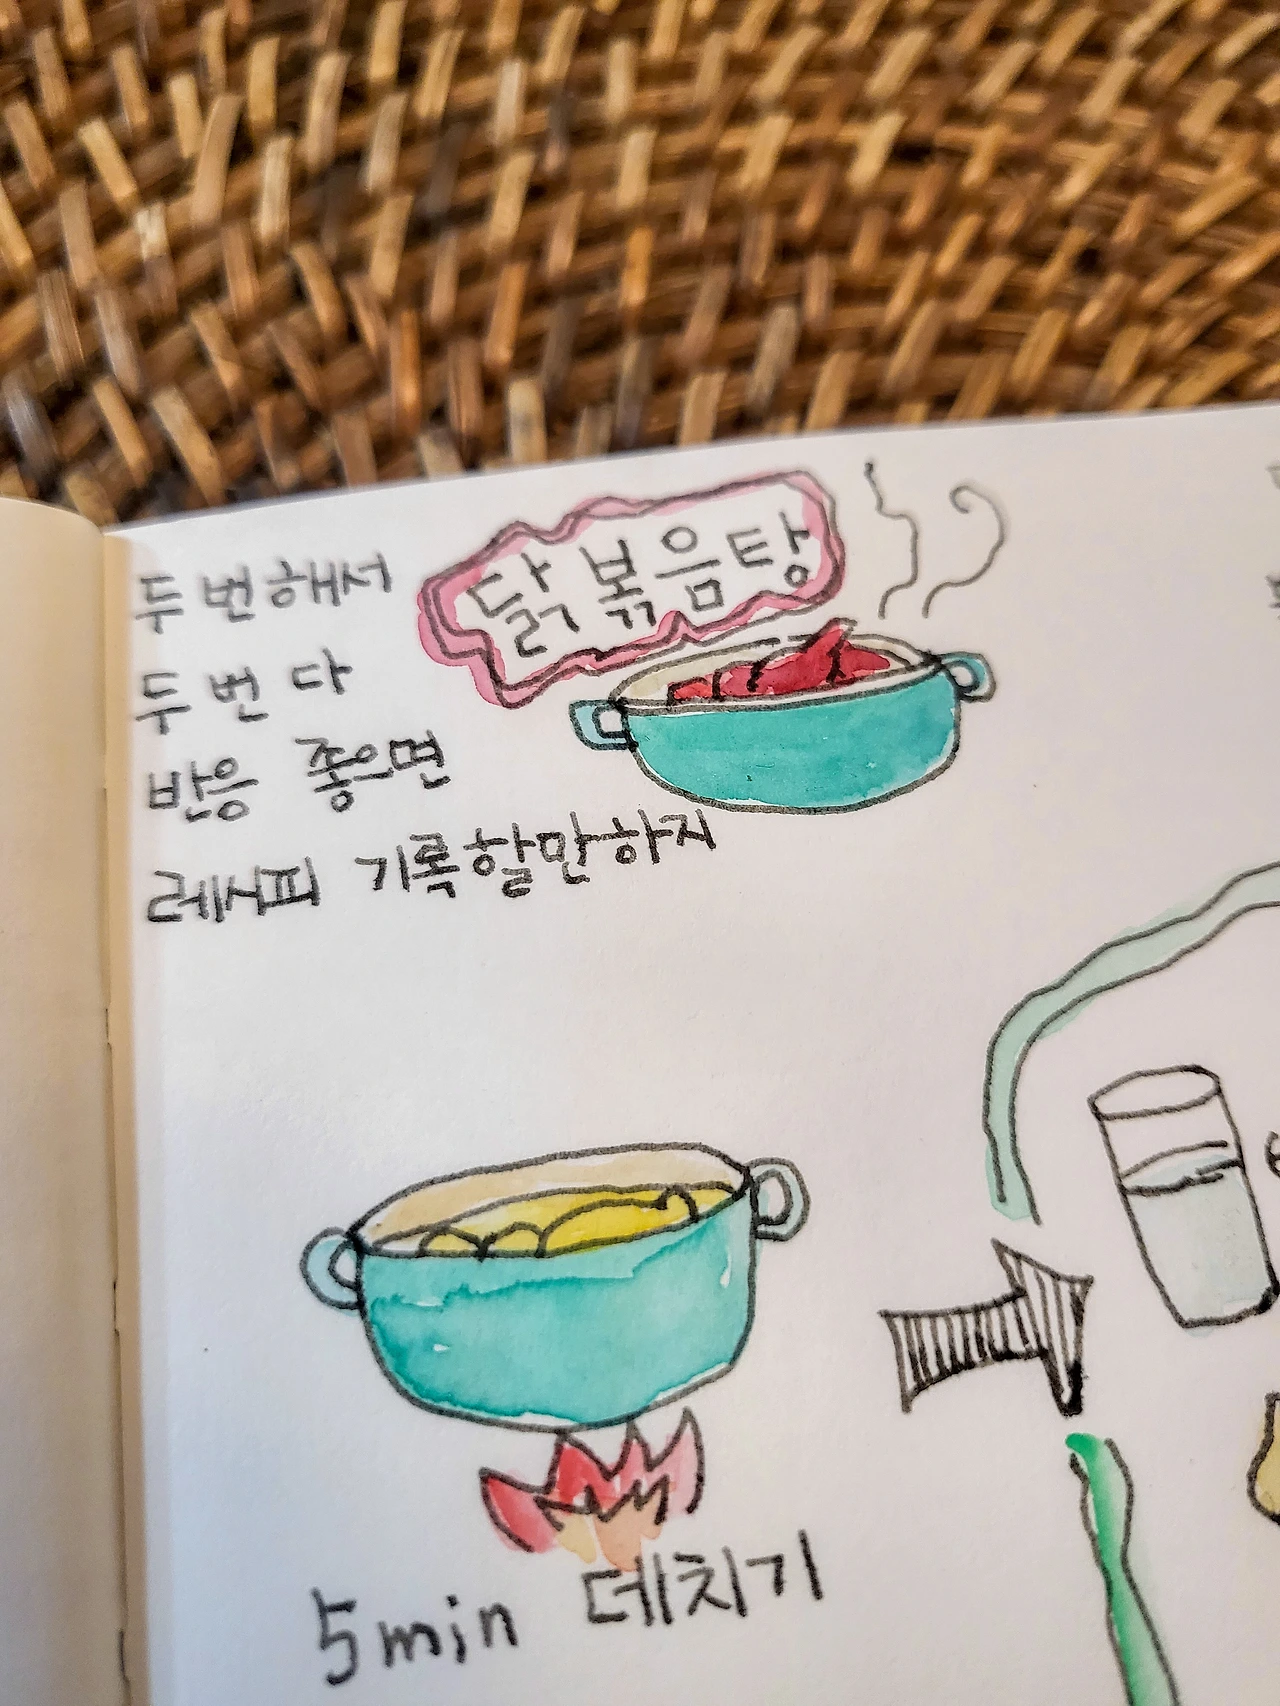 닭볶음탕
두번해서
두번 다
반응 좋으면
레시피 기록할만하지
5min 데치기